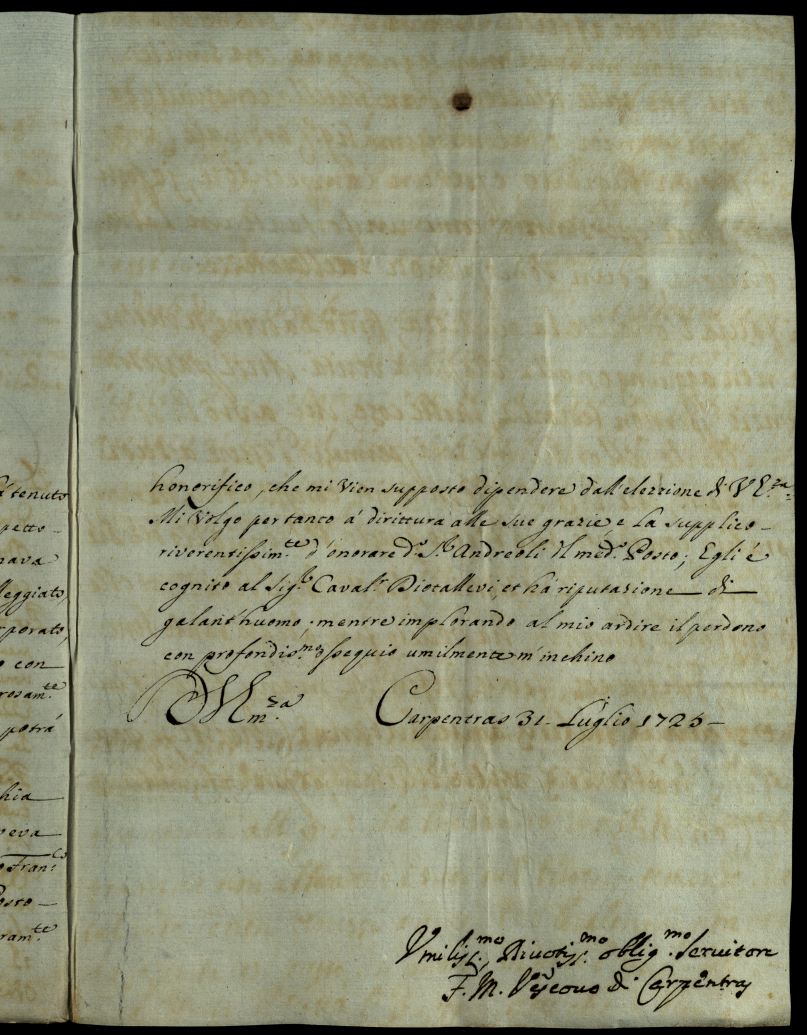 honorifico, che mi vien supposto dipendere dall'elezzione di V E.za
Mi volgo per tanto á dirittura alle sue grazie e la supplico
riverentissim.te d'onorare d.o S.r Andreoli il med.o Posto; Egli é
cognito al Sig.r Caval.r Diotallevi, et há riputazione di
galant'huomo, mentre implorando al mio ardire il perdono
con profondis.mo ossequio umilmente m'inchino
Carpentras 31 Luglio 1725
Vmiliss.mo Divotiss.mo oblig.mo Servitore
F. M. Vescovo di Carpentras
á tenuto
petto
nava
leggiato,
rporato,
o con
rosam.te
potrá
hia
veva
o Fran.co
osto
ram.te